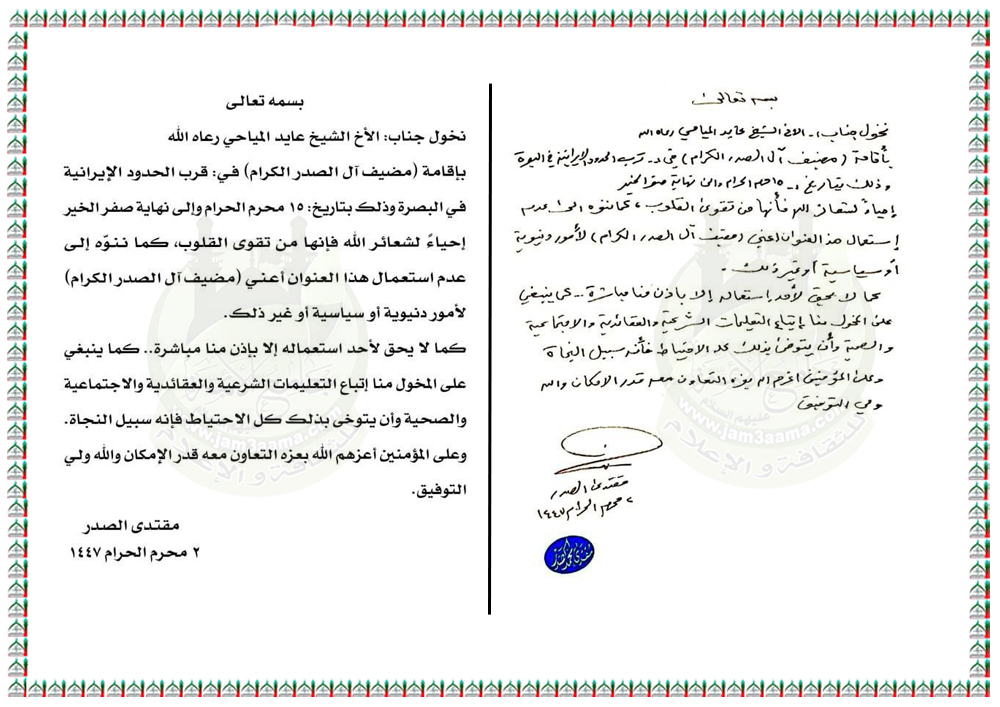 بسمه تعالى
نخول جناب:ـ الاخ الشيخ عايد المياحي رعاه الله
بأقامة (مضيف آل الصدر الكرام) في:ـ قرب الحدود الإيرانية في البصرة
وذلك بتاريخ:ـ ١٥ محرم الحرام والى نهاية صفر الخير
إحياءً لشعائر الله فأنها من تقوى القلوب، كما ننوه الى عدم
إستعمال هذا العنوان اعني (مضيف آل الصدر الكرام) لأمور دنيوية
أو سياسية أو غير ذلك.
كما لا يحق لأحد استعماله إلا بإذن منا مباشرة.. كما ينبغي
على المخول منا إتباع التعليمات الشرعية والعقائدية والاجتماعية
والصحية وأن يتوخى بذلك كل الاحتياط فأنه سبيل النجاة
وعلى المؤمنين اعزهم الله بعزه التعاون معه قدر الامكان والله
ولي التوفيق
مقتدى الصدر
٢ محرم الحرام ١٤٤٧
بسمه تعالى
نخول جناب: الأخ الشيخ عايد المياحي رعاه الله
بإقامة (مضيف آل الصدر الكرام) في: قرب الحدود الإيرانية
في البصرة وذلك بتاريخ: ١٥ محرم الحرام وإلى نهاية صفر الخير
إحياءً لشعائر الله فإنها من تقوى القلوب، كما ننوّه إلى
عدم استعمال هذا العنوان أعني (مضيف آل الصدر الكرام)
لأمور دنيوية أو سياسية أو غير ذلك.
كما لا يحق لأحد استعماله إلا بإذن منا مباشرة.. كما ينبغي
على المخول منا إتباع التعليمات الشرعية والعقائدية والاجتماعية
والصحية وأن يتوخى بذلك كل الاحتياط فإنه سبيل النجاة.
وعلى المؤمنين أعزهم الله بعزه التعاون معه قدر الإمكان والله ولي
التوفيق.
مقتدى الصدر
٢ محرم الحرام ١٤٤٧
www.jam3aama.com
للثقافة و الإعلام